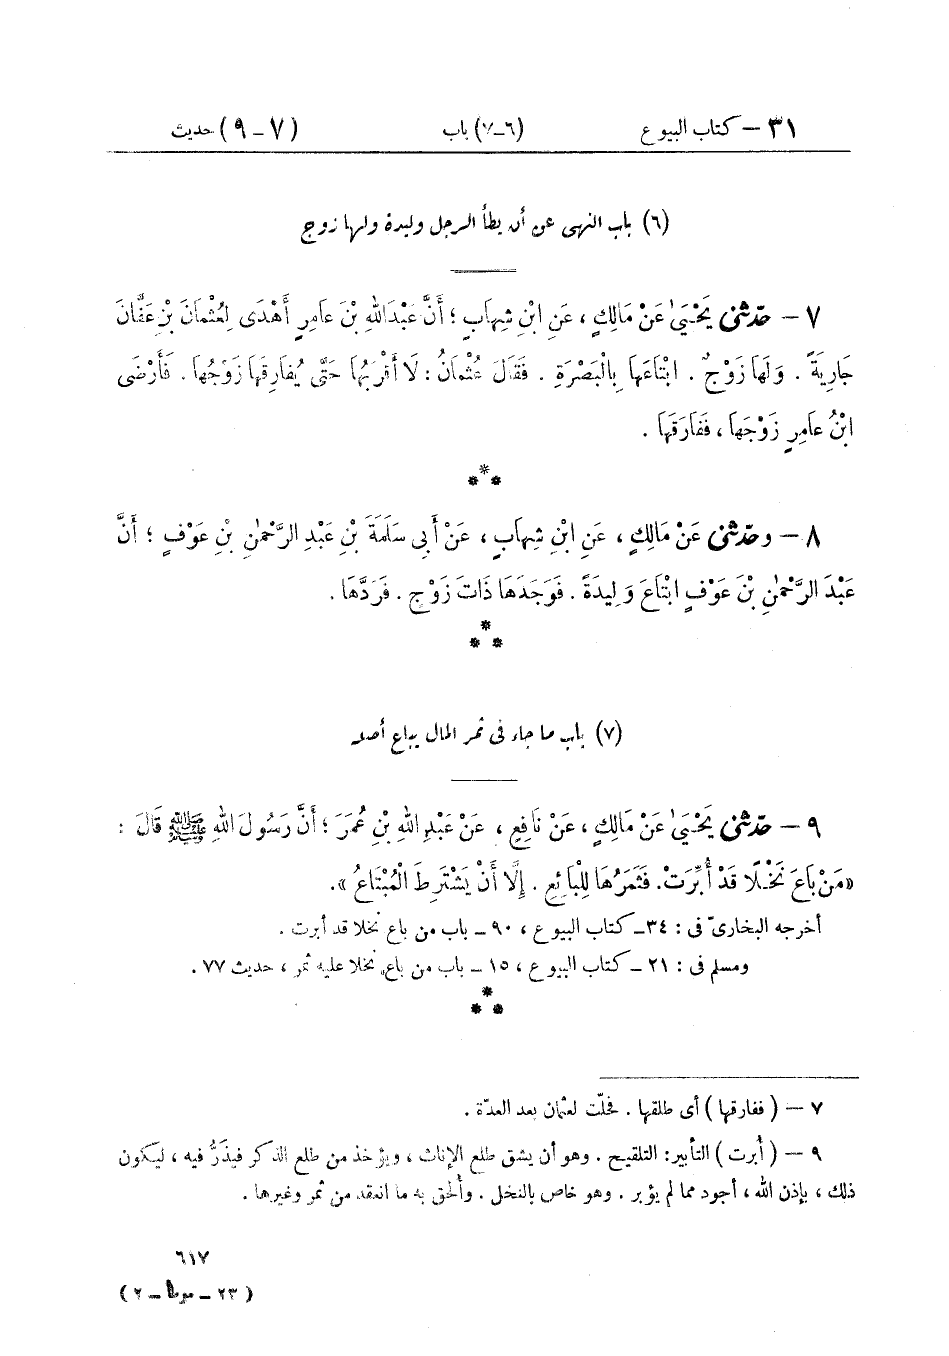 ٣١ – كتاب البيوع (٦-٧) باب (٧-٩) حديث
(٦) باب النهى عن أن يطأ الرجل وليدة ولها زوج
٧ – حدّثنى يَحْيَىٰ عَنْ مَالِكٍ، عَنِ ابْنِ شِهَابٍ؛ أَنَّ عَبْدَ اللهِ بْنَ عَامِرٍ أَهْدَى لِعُثْمَانَ بْنِ عَفَّانَ
جَارِيَةً. وَلَهَا زَوْجٌ. ابْتَاعَهَا بِالْبَصْرَةِ. فَقَالَ عُثْمَانُ: لَا أَقْرَبُهَا حَتَّى يُفَارِقَهَا زَوْجُهَا. فَأَرْضَى
ابْنُ عَامِرٍ زَوْجَهَا، فَفَارَقَهَا.
***
٨ – وحدّثنى عَنْ مَالِكٍ، عَنِ ابْنِ شِهَابٍ، عَنْ أَبِي سَلَمَةَ بْنِ عَبْدِ الرَّحْمٰنِ بْنِ عَوْفٍ؛ أَنَّ
عَبْدَ الرَّحْمٰنِ بْنَ عَوْفٍ ابْتَاعَ وَلِيدَةً. فَوَجَدَهَا ذَاتَ زَوْجٍ. فَرَدَّهَا.
***
(٧) باب ما جاء فى ثمر المال يباع أصله
٩ – حدّثنى يَحْيَىٰ عَنْ مَالِكٍ، عَنْ نَافِعٍ، عَنْ عَبْدِ اللهِ بْنِ عُمَرَ؛ أَنَّ رَسُولَ اللهِ ﷺ قَالَ:
«مَنْ بَاعَ نَخْلًا قَدْ أُبِّرَتْ. فَثَمَرُهَا لِلْبَائِعِ. إِلَّا أَنْ يَشْتَرِطَ الْمُبْتَاعُ».
أخرجه البخارىّ فى: ٣٤ – كتاب البيوع، ٩٠ – باب من باع نخلا قد أبرت.
ومسلم فى: ٢١ – كتاب البيوع، ١٥ – باب من باع نخلا عليه ثمر، حديث ٧٧.
***
٧ – (ففارقها) أى طلقها. فحلّت لعثمان بعد العدّة.
٩ – (أُبرت) التأبير: التلقيح. وهو أن يشق طلع الإناث، ويؤخذ من طلع الذكر فيذَرُّ فيه، ليكون
ذلك، بإذن الله، أجود مما لم يؤبر. وهو خاص بالنخل. وألحق به ما انعقد من ثمر وغيرها.
٦١٧
(٢٣ – موطأ – ٢)